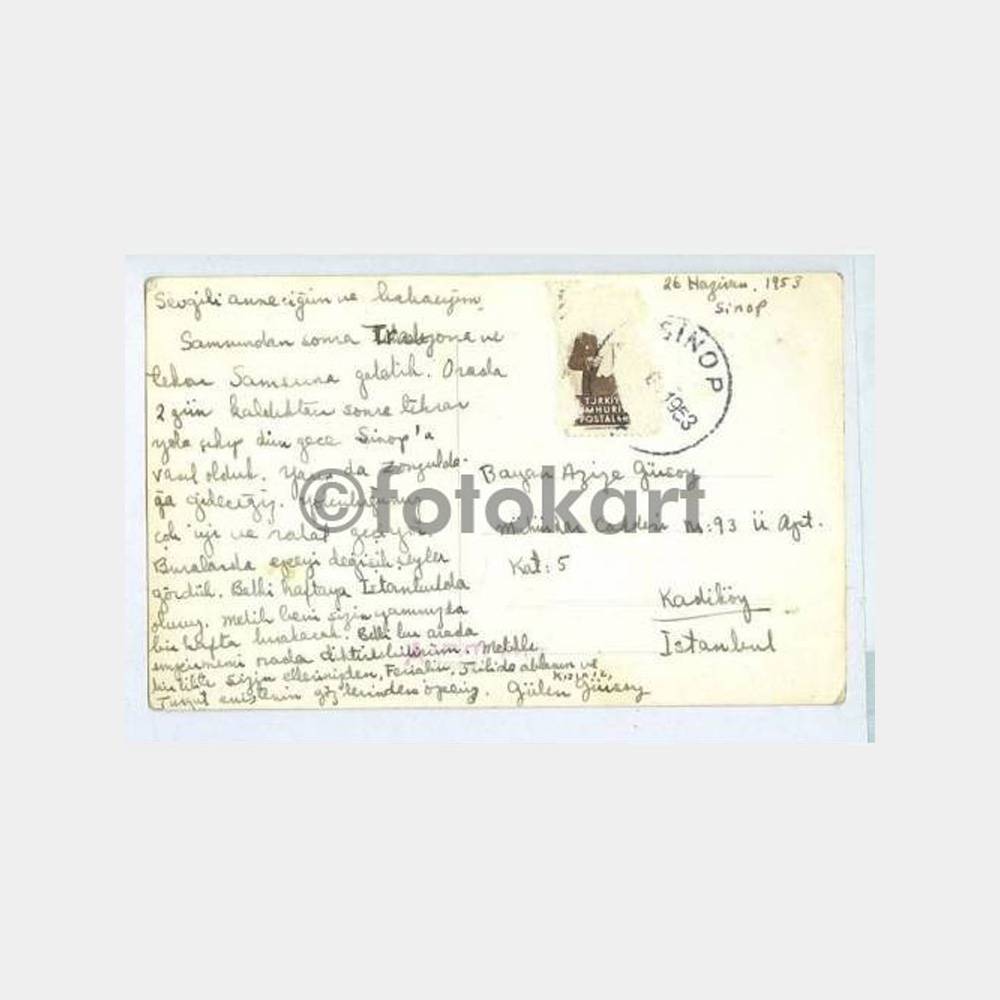 26 Haziran. 1953
Sinop
Sevgili anneciğim ve babacığım
Samsundan sonra Trabzona ve
tekrar Samsuna geldik. Orada
2 gün kaldıktan sonra tekrar
yola çıkıp dün gece Sinop'a
vasıl olduk. Yarın da Zongulda-
ğa gideceğiz. Yolculuğumuz
çok iyi ve rahat geçiyor.
Buralarda epeyi değişik şeyler
gördük. Belki haftaya İstanbulda
oluruz. Metih beni sizin yanınızda
bir hafta bırakacak. Belki bu arada
orada diktirebilirim. Metihle
birlikte sizin ellerinizden, Ferialin, ablanın ve
Turgut eniştenin gözlerinden öperiz. Gülen Gürsoy
SINOP
1953
TÜRKİY
MHURİ
POSTALA
Bayan Azize Gürsoy
Mühürdar Caddesi No: 93 Ü Apt.
Kat: 5
Kadıköy
İstanbul
©fotokart